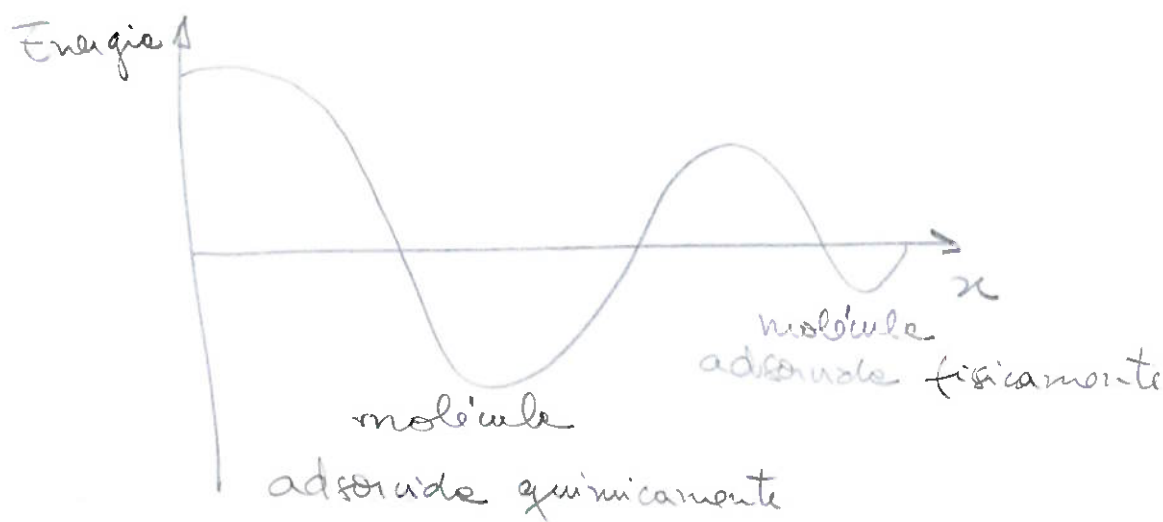 Energia
x
molécula
adsorvida fisicamente
molécula
adsorvida quimicamente